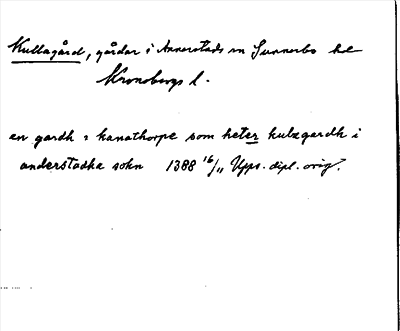 Kullagård, gårdar i Annerstads sn Sunnerbo hd
Kronobergs l.
en gardh i kanathorpe som heter kulzgardh i
anderstadha sokn 1388 16/11 Upps. dipl. orig.